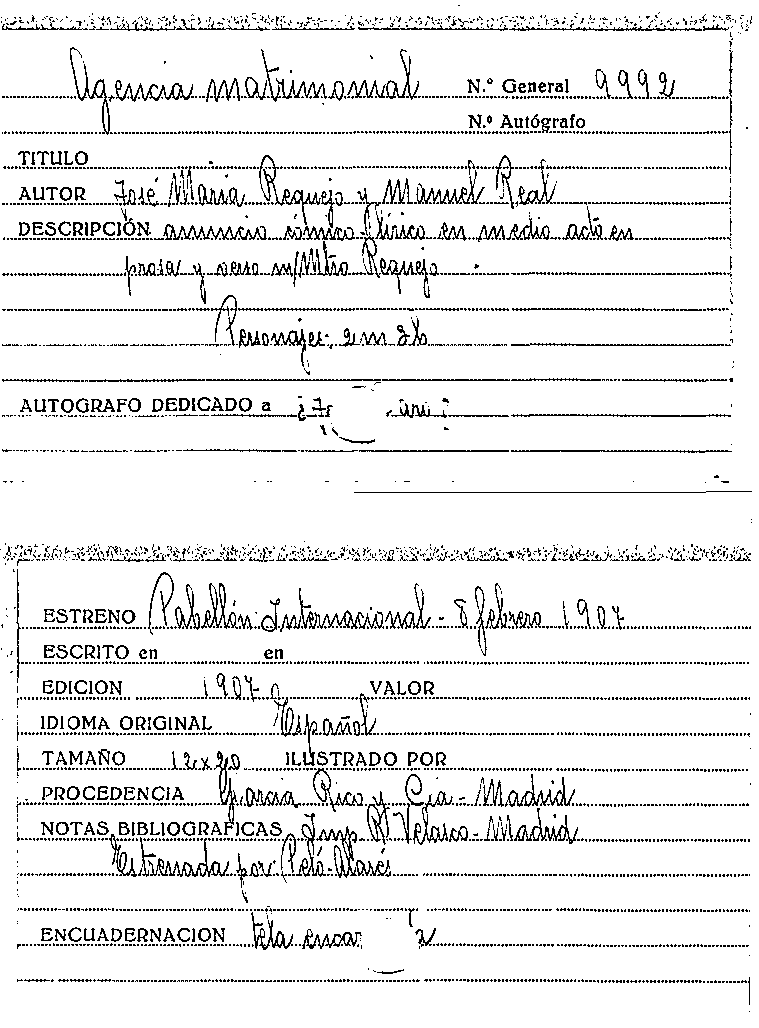 Agencia matrimonial N.º General 9992
N.º Autógrafo
TITULO
AUTOR José Maria Requejo y Manuel Real
DESCRIPCIÓN anuncio cómico-lírico en medio acto en
prosa y verso m/Mtro Requejo.
Personajes: 2 m 2 h
AUTOGRAFO DEDICADO a
ESTRENO Pabellón Internacional - 8 febrero 1907
ESCRITO en en
EDICION 1907 VALOR
IDIOMA ORIGINAL Español
TAMAÑO 12x20 ILUSTRADO POR
PROCEDENCIA Garcia Rico y Cia - Madrid
NOTAS BIBLIOGRAFICAS Imp. R. Velasco - Madrid
Estrenada por:
ENCUADERNACION tela